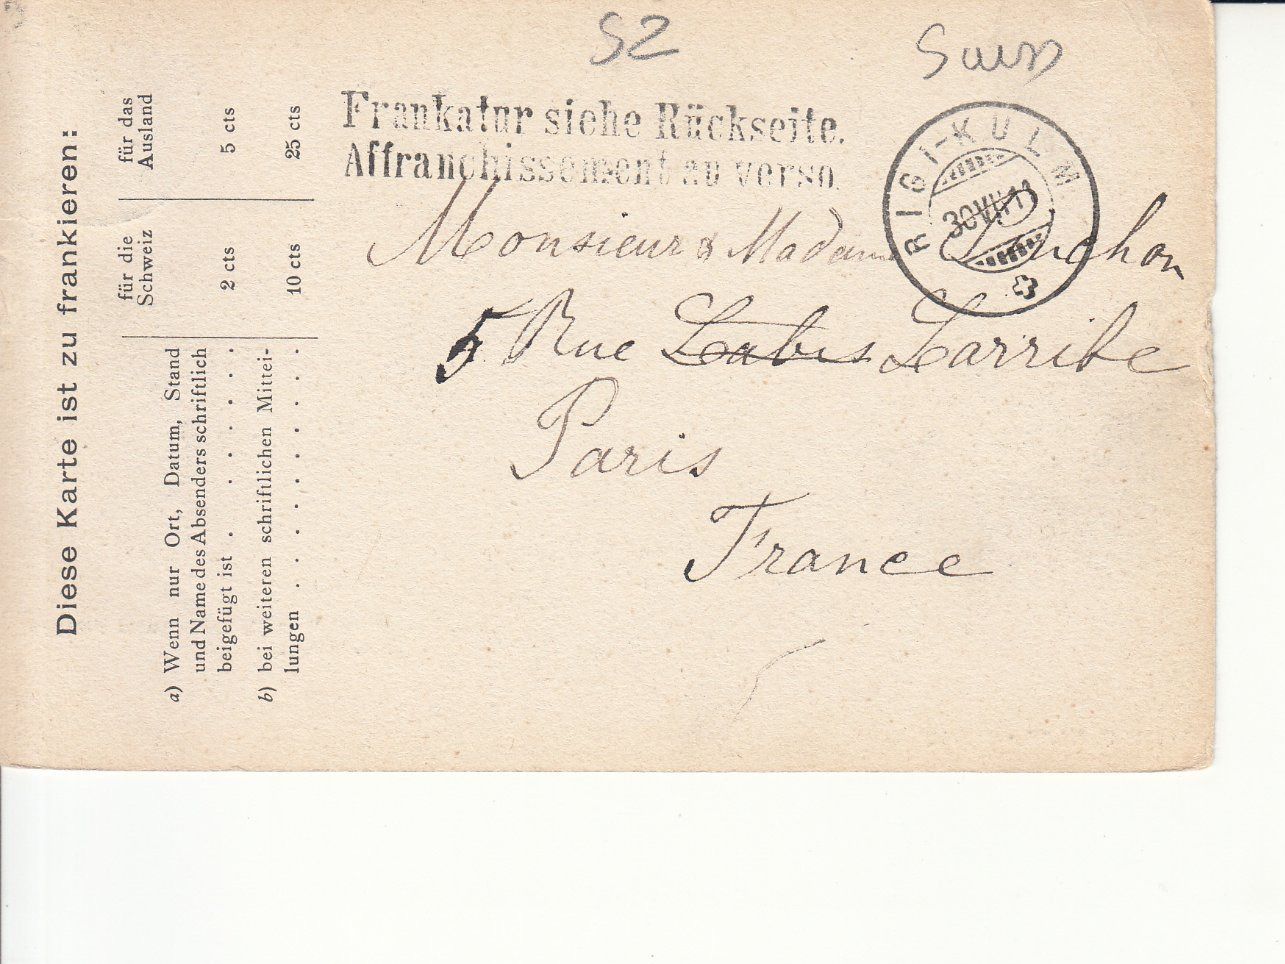 S2
Frankatur siehe Rückseite.
Affranchissement au verso.
RIGI-KULM
30 VII 11
Monsieur & Madame
5 Rue Labis Larribe
Paris
France
Diese Karte ist zu frankieren:
für die Schweiz
für das Ausland
a) Wenn nur Ort, Datum, Stand
und Name des Absenders schriftlich
beigefügt ist . . . . . . 2 cts 5 cts
b) bei weiteren schriftlichen Mittei-
lungen . . . . . . . . . . 10 cts 25 cts